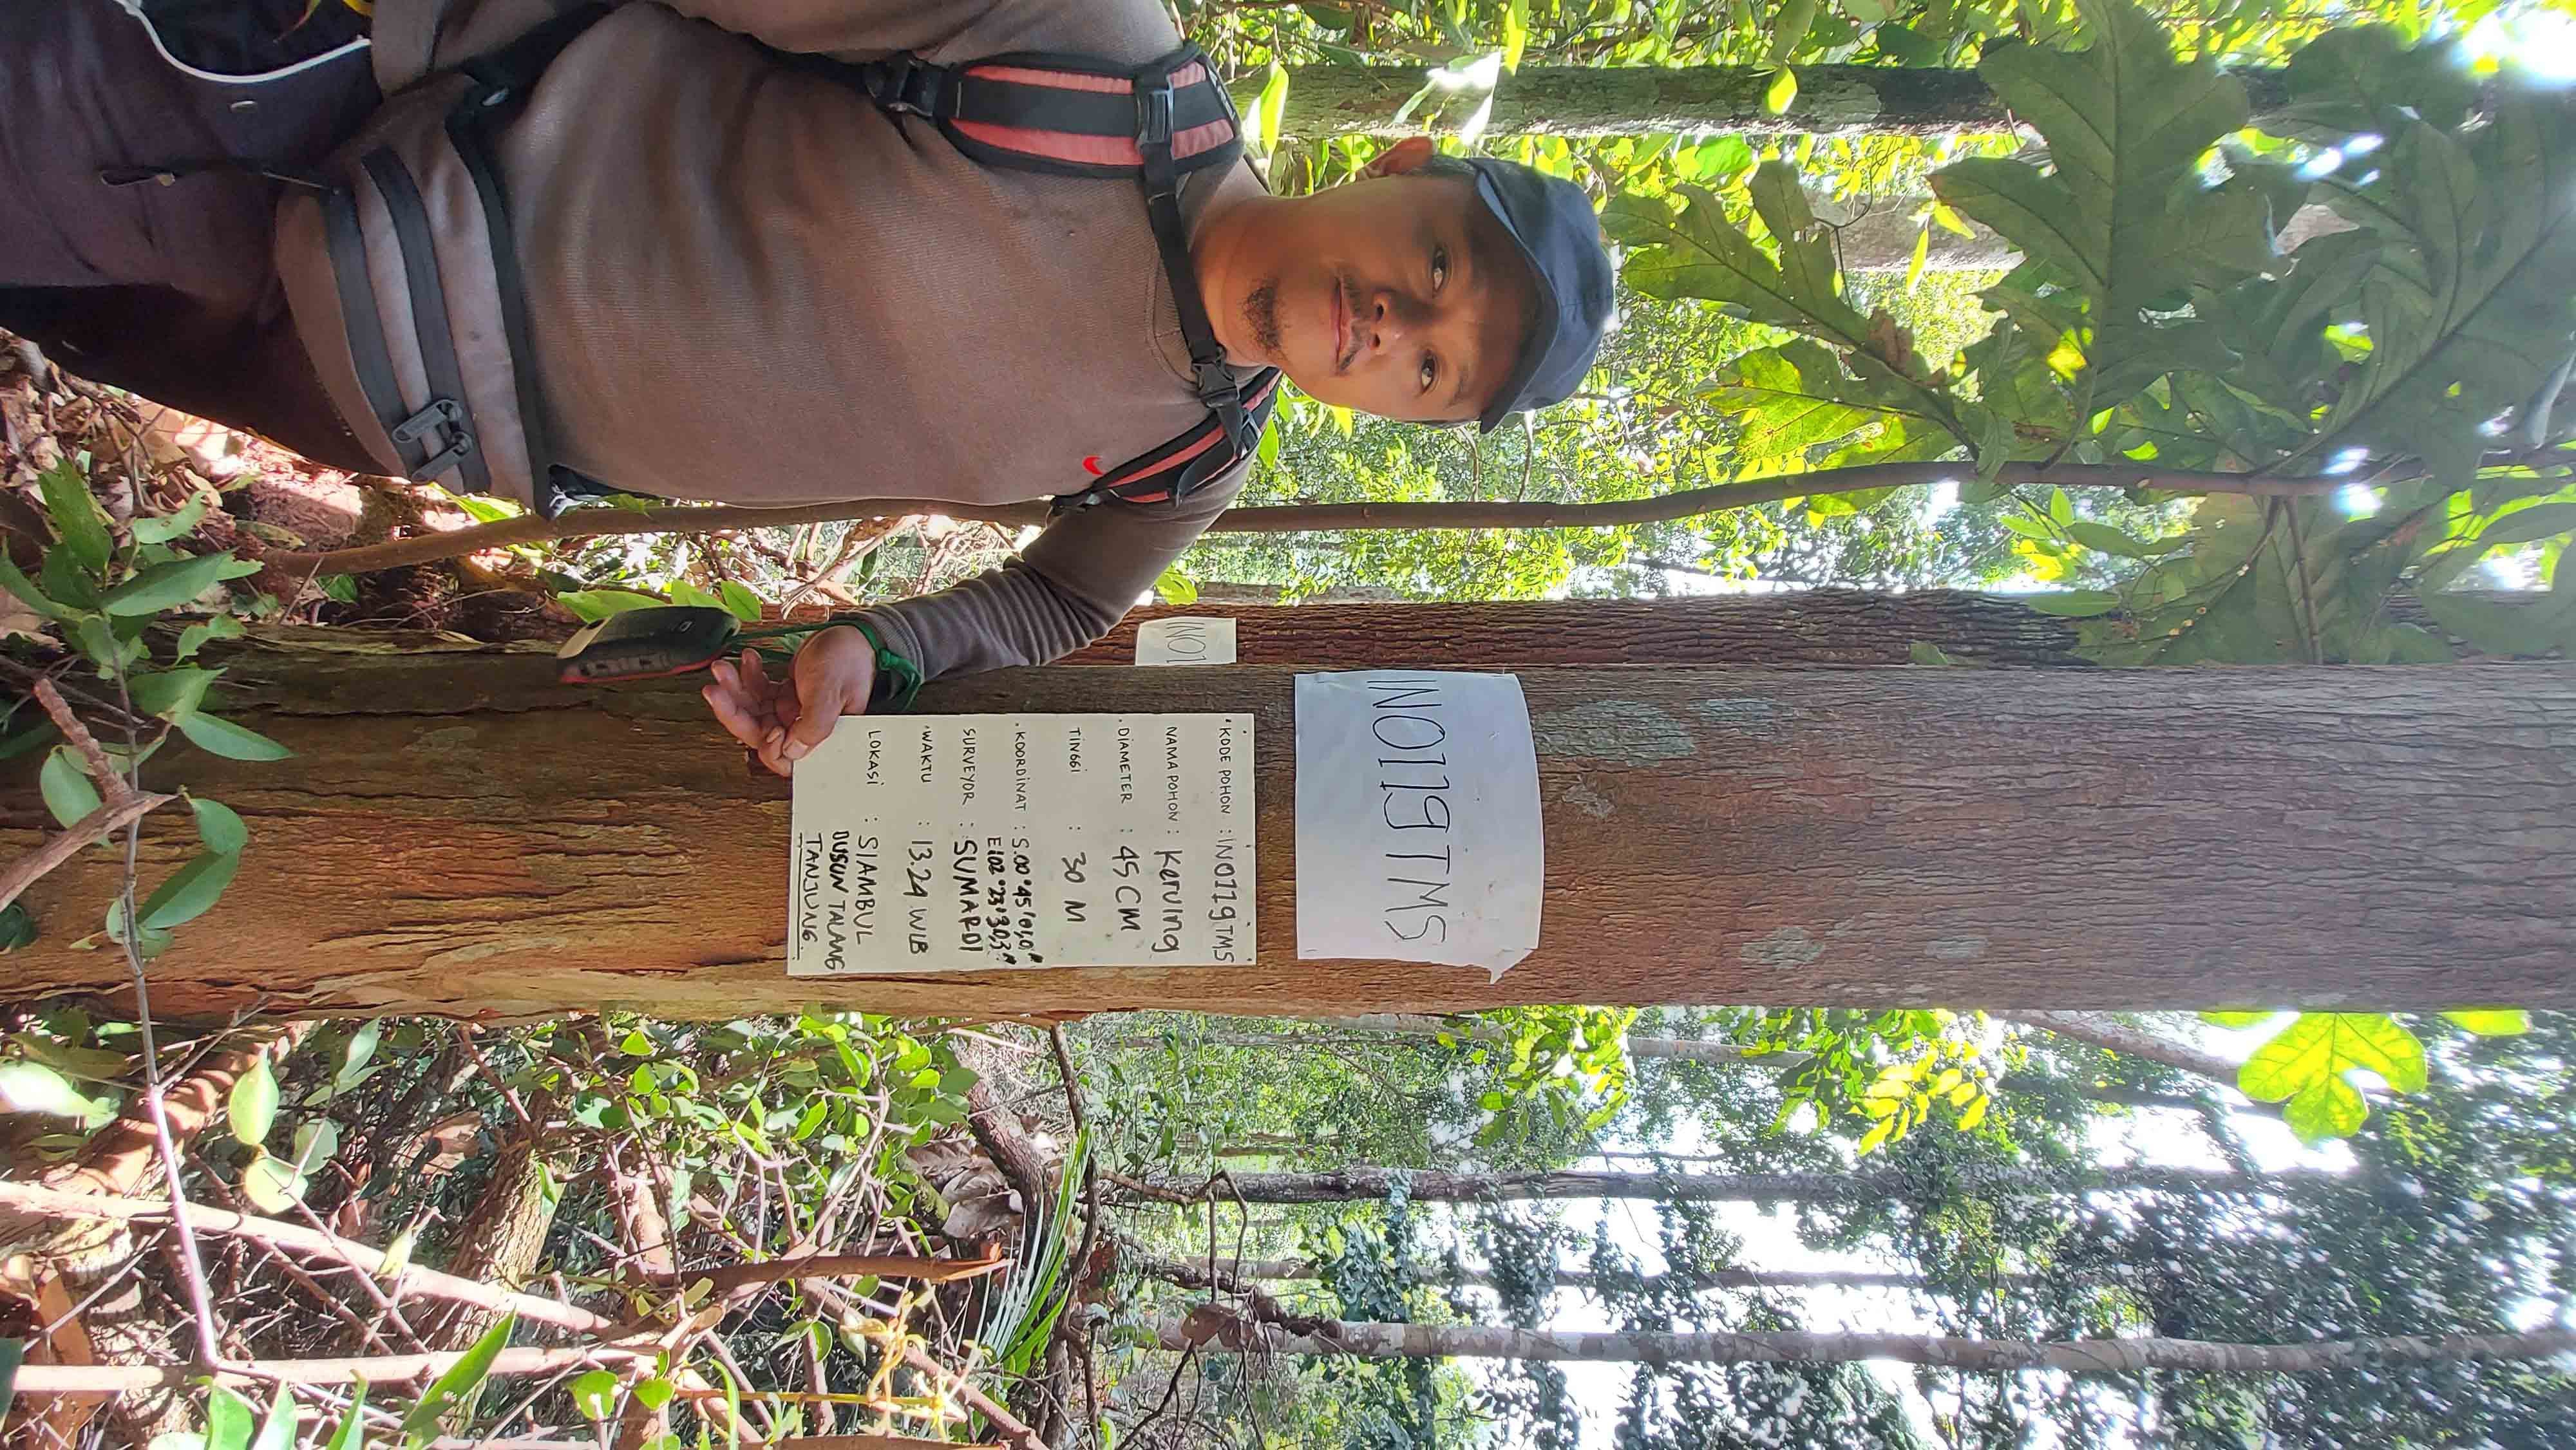 INO119TMS
INO1
KODE POHON : INO119TMS
NAMA POHON : Keruing
DIAMETER : 45 CM
TINGGI : 30 M
KOORDINAT : S.00°45'01,0"
E102°23'30,3"
SURVEYOR : SUMARDI
WAKTU : 13.24 WIB
LOKASI : SIAMBUL
DUSUN TALANG
TANJUNG.